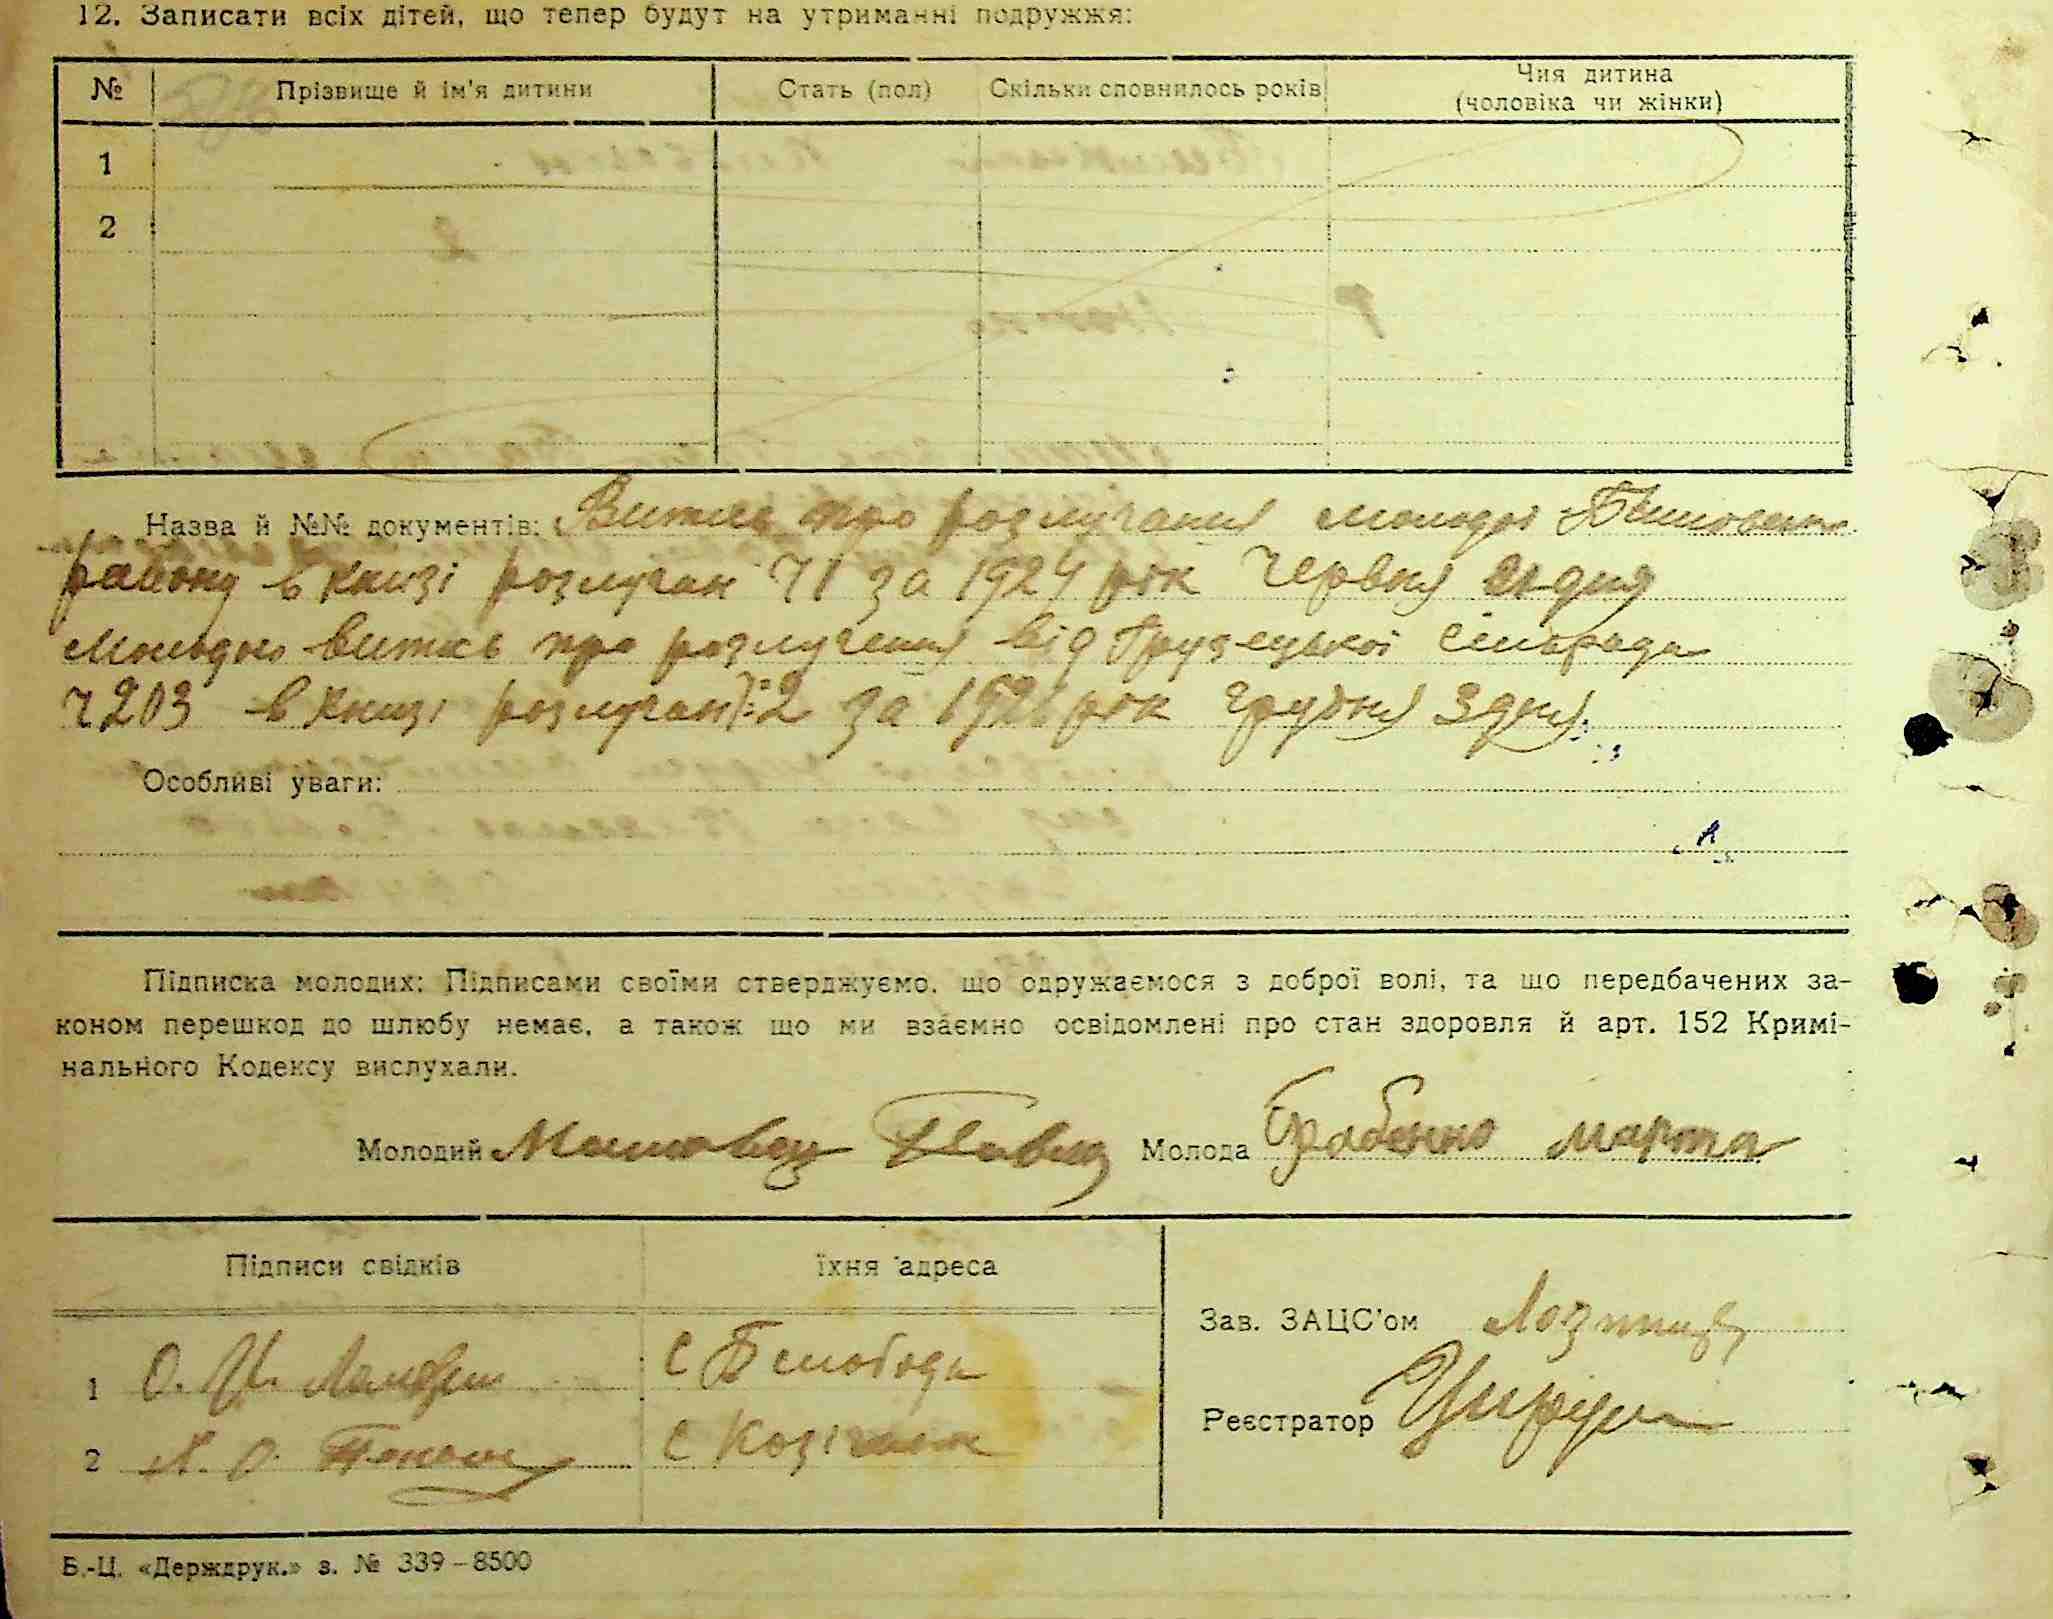 12. Записати всіх дітей, що тепер будут на утриманні подружжя:
№ Прізвище й ім'я дитини Стать (пол) Скільки сповнилось років Чия дитина
(чоловіка чи жінки)
1
2
Назва й №№ документів: Витяг про розлучання молодої
району в книзі розлучан 71 за 1924 рік Червня дня
Молодого витяг про розлучення від Грузецької сільради
ч 203 в книзі розлучан 2 за рік грудня 3 дня.
Особливі уваги:
Підписка молодих: Підписами своїми стверджуємо, що одружаємося з доброї волі, та що передбачених за-
коном перешкод до шлюбу немає, а також що ми взаємно освідомлені про стан здоровля й арт. 152 Кримі-
нального Кодексу вислухали.
Молодий Павло Молода Грабенко Марта
Підписи свідків Їхня адреса
Зав. ЗАЦС'ом
1 О. С
Реєстратор
2 С
Б.-Ц. «Держдрук.» з. № 339–8500